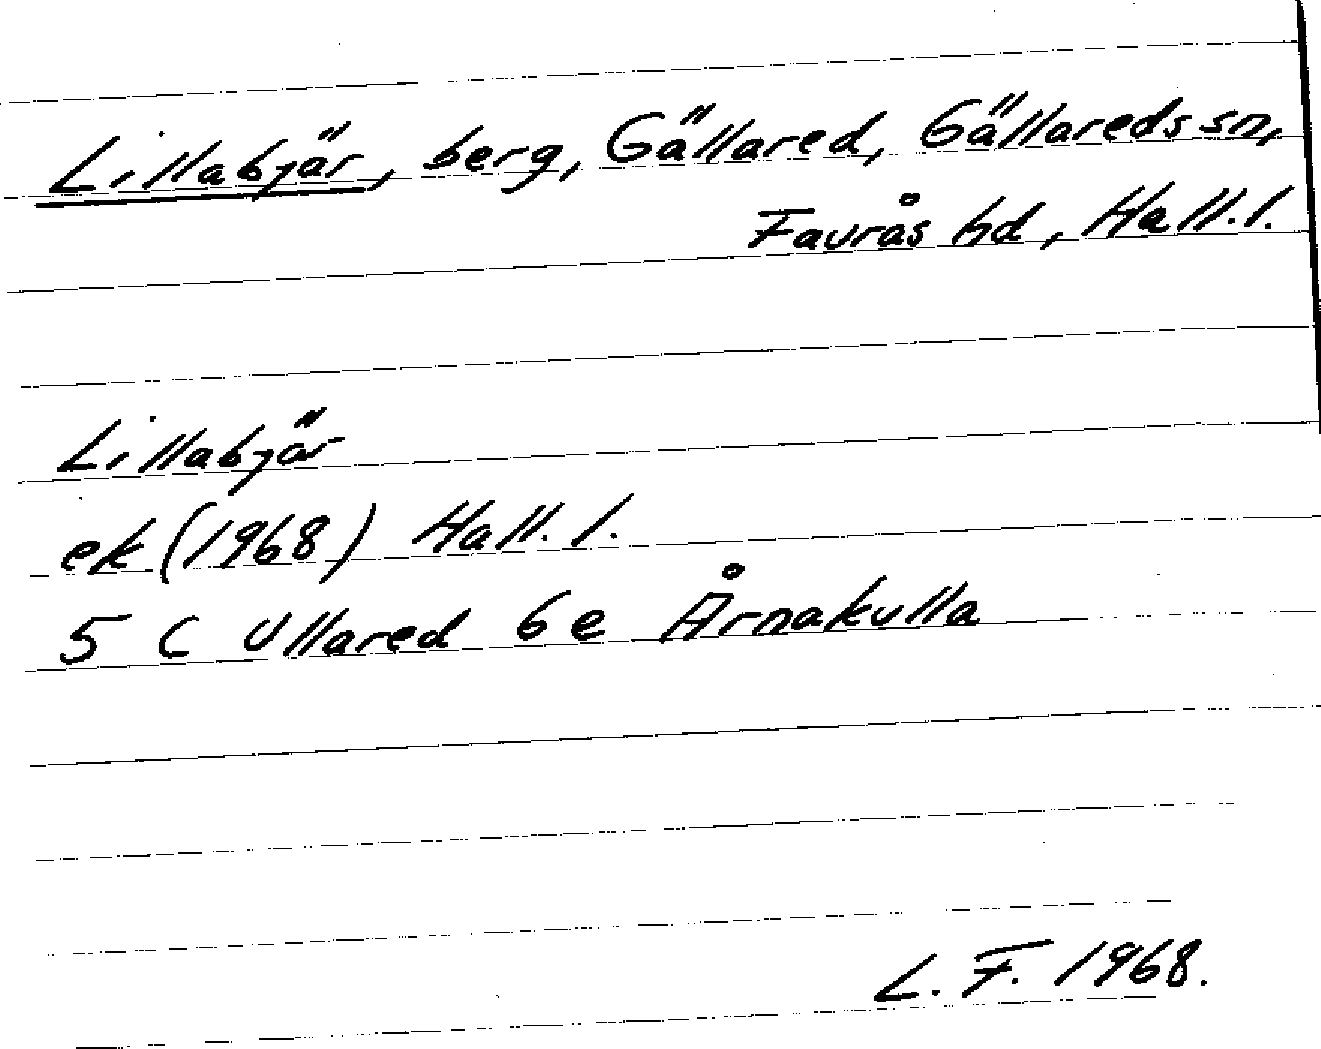 Lillabjär, berg, Gällared, Gällareds sn,
Faurås hd, Hall.l.
Lillabjär
ek (1968) Hall.l.
5 C Ullared 6e Årnakulla
L. F. 1968.